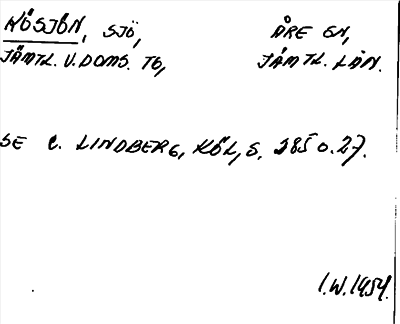 NÖSJÖN, SJÖ, ÅRE SN,
JÄMTL. V. DOMS. TG, JÄMTL. LÄN.
SE C. LINDBERG, KÖL, S. 285 O. 27.
I.W. 1954.